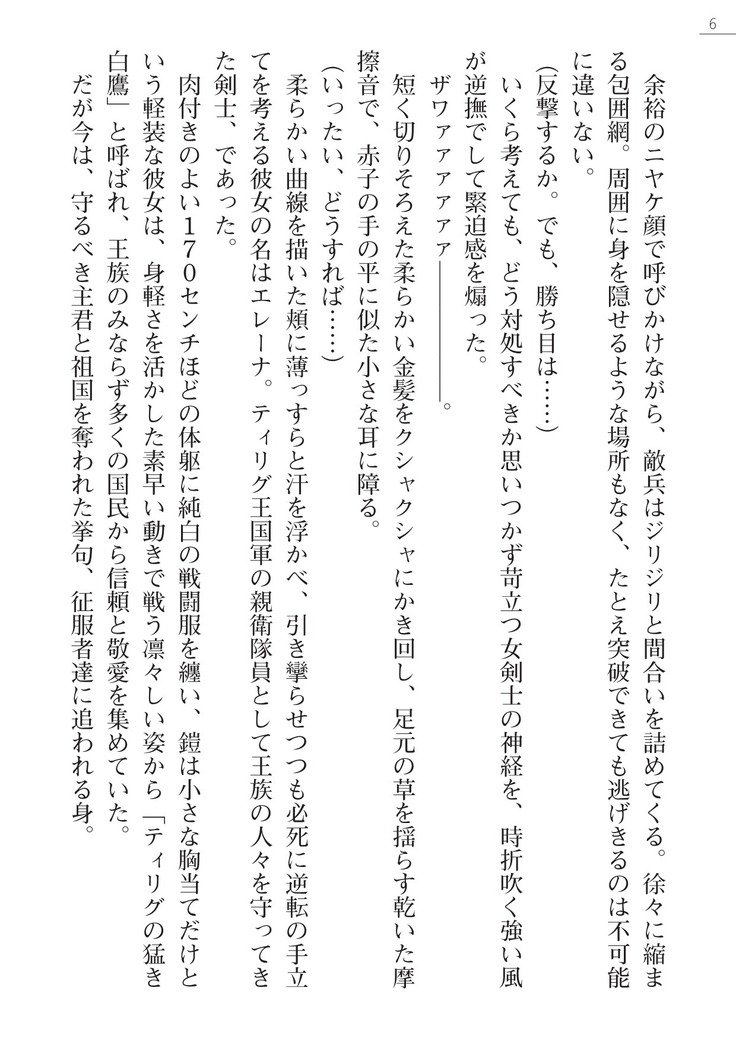 6
　余裕のニヤケ顔で呼びかけながら、敵兵はジリジリと間合いを詰めてくる。徐々に縮ま
る包囲網。周囲に身を隠せるような場所もなく、たとえ突破できても逃げきるのは不可能
に違いない。
（反撃するか。でも、勝ち目は……）
　いくら考えても、どう対処すべきか思いつかず苛立つ女剣士の神経を、時折吹く強い風
が逆撫でして緊迫感を煽った。
　ザワァァァァァァ――――――。
　短く切りそろえた柔らかい金髪をクシャクシャにかき回し、足元の草を揺らす乾いた摩
擦音で、赤子の手の平に似た小さな耳に障る。
（いったい、どうすれば……）
　柔らかい曲線を描いた頬に薄っすらと汗を浮かべ、引き攣らせつつも必死に逆転の手立
てを考える彼女の名はエレーナ。ティリグ王国軍の親衛隊員として王族の人々を守ってき
た剣士、であった。
　肉付きのよい１７０センチほどの体躯に純白の戦闘服を纏い、鎧は小さな胸当てだけと
いう軽装な彼女は、身軽さを活かした素早い動きで戦う凛々しい姿から「ティリグの猛き
白鷹」と呼ばれ、王族のみならず多くの国民から信頼と敬愛を集めていた。
　だが今は、守るべき主君と祖国を奪われた挙句、征服者達に追われる身。